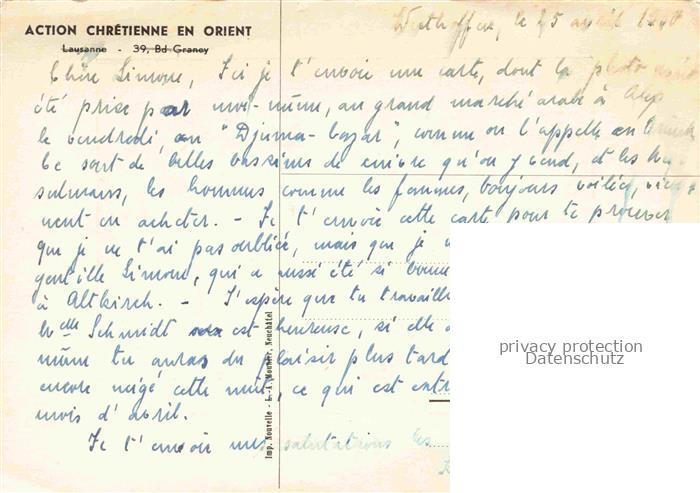 ACTION CHRÉTIENNE EN ORIENT
Lausanne - 39, Bd Grancy
le 25 avril
Chère Simone, Ici je t'envoie une carte, dont la photo
été prise par moi-même, au grand marché arabe à Alep
le vendredi, au "Djuma-bazar", comme on l'appelle en
Ce sont de belles bassines de cuivre qu'on y vend, et les mu-
sulmans, les hommes comme les femmes, toujours voilées, vien-
nent en acheter. - Je t'envoie cette carte pour te prouver
que je ne t'ai pas oubliée, mais que je
gentille Simone, qui a aussi été si bonne
à Altkirch. - J'espère que tu travaille
Mlle Schmidt est heureuse, si elle
même tu auras du plaisir plus tard
encore neigé cette nuit, ce qui est
mois d'avril.
Je t'envoie mes salutations les
Imp. Nouvelle - L.-A. Monnier, Neuchâtel
privacy protection
Datenschutz